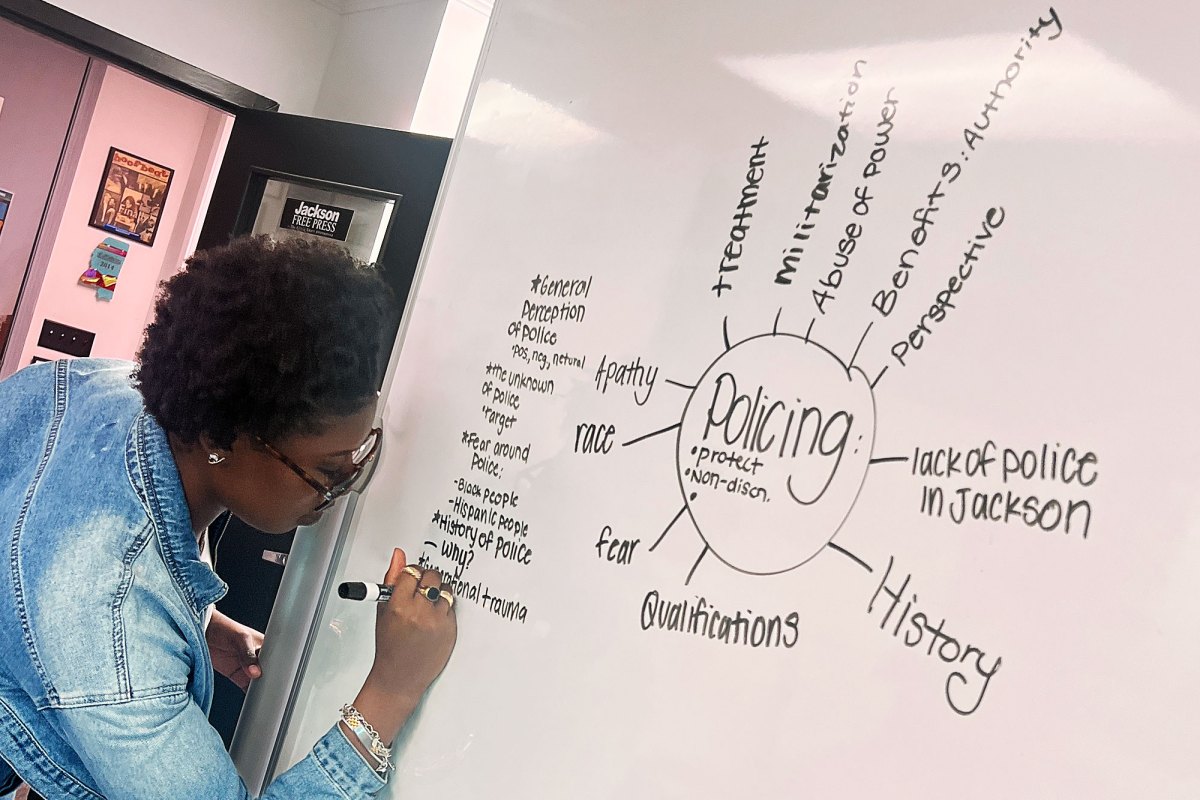 boofbeat
Final
2014
Jackson
FREE PRESS
*General
Perception
of police
'pos, neg, netural
*the unknown
of police
'Target
*Fear around
Police:
-Black people
-Hispanic people
*History of Police
- why?
trauma
treatment
Militarization
Abuse of power
Benefits: Authority
Perspective
Apathy
race
fear
Qualifications
Policing:
•protect
•Non-discn.
•
lack of police
in Jackson
History